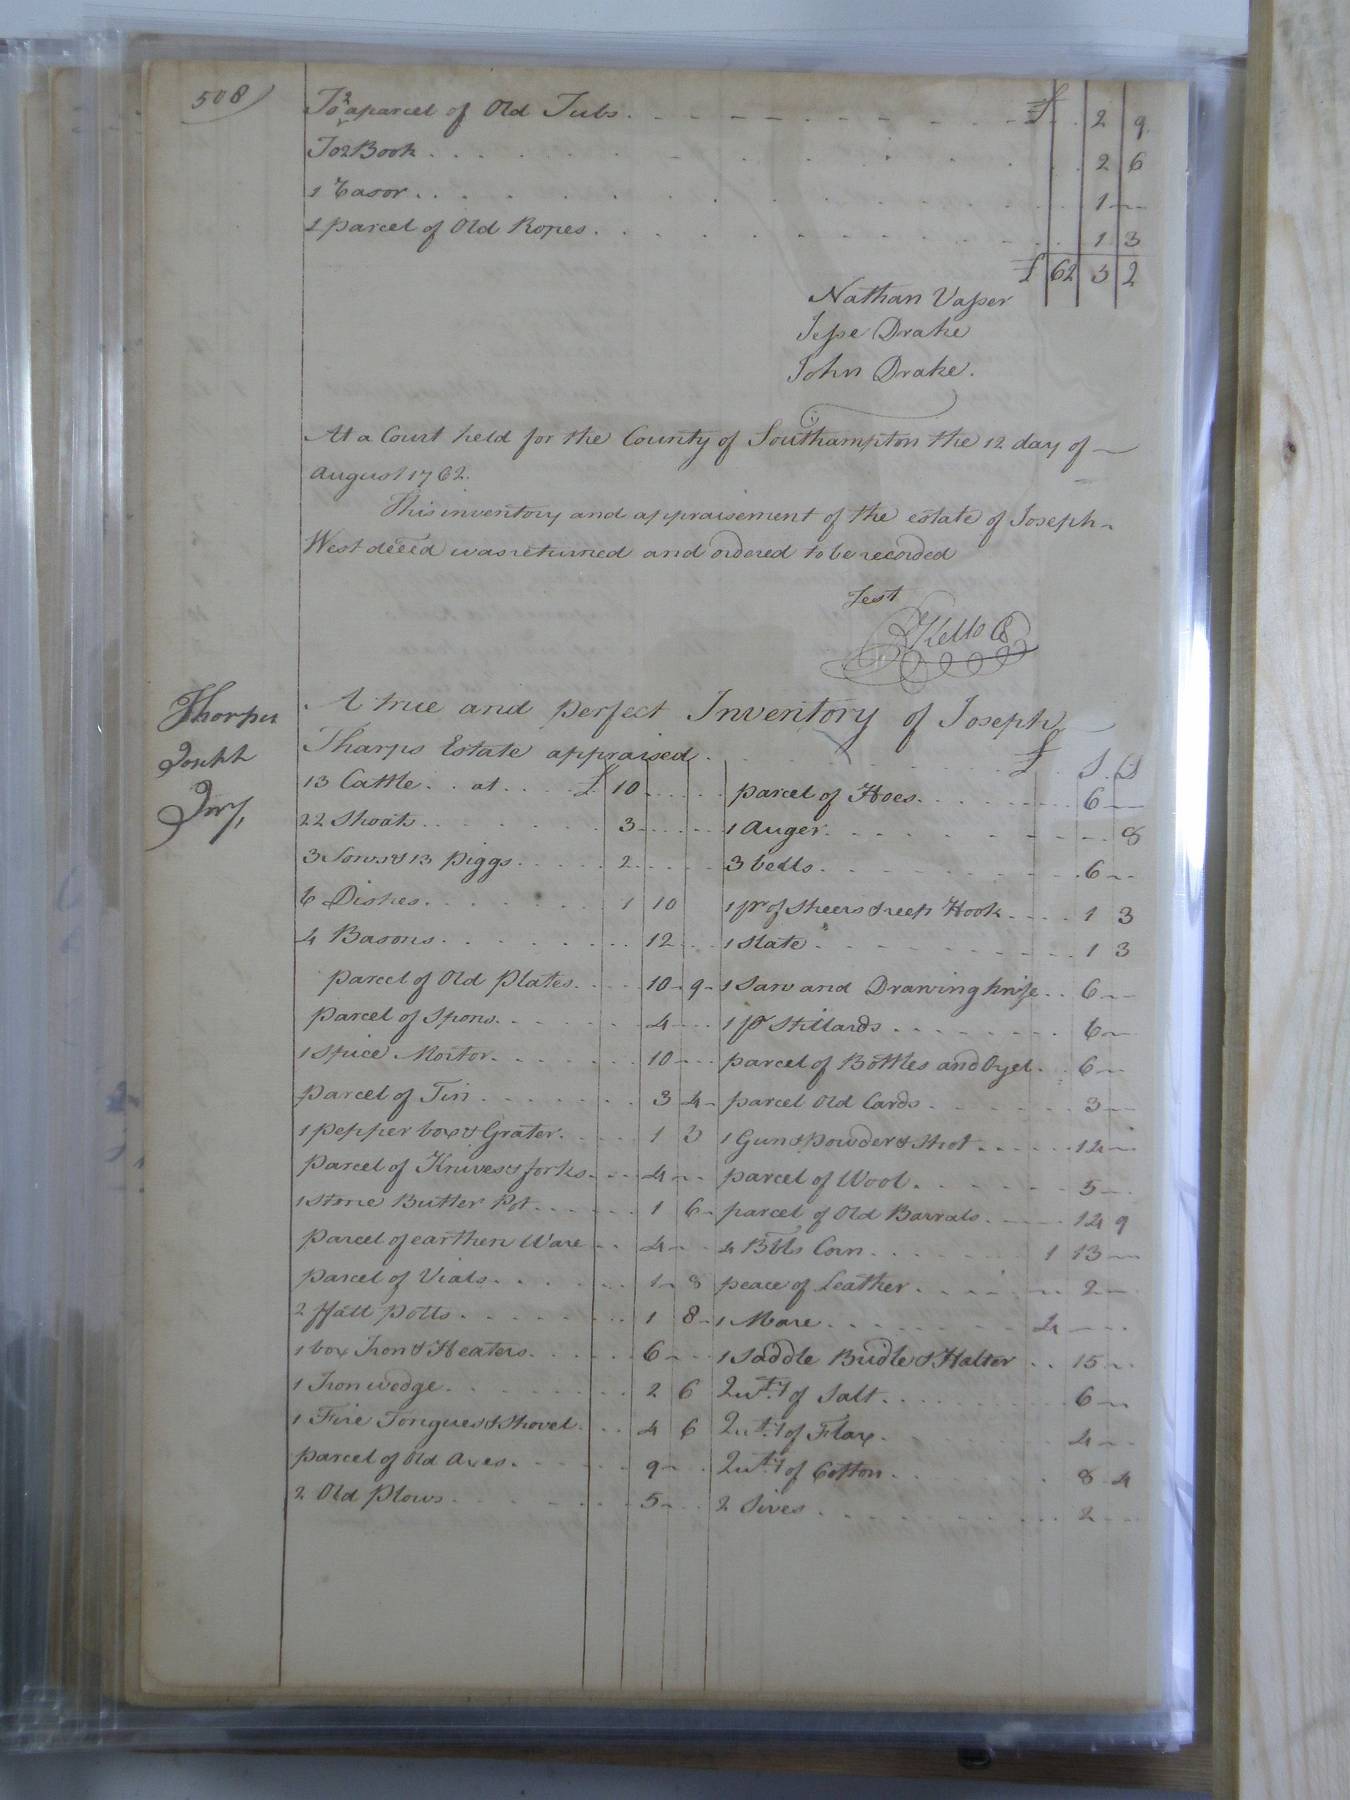 508
To 2 a parcel of Old Tubs . £ 2 9
To 2 Book . 2 6
1 Rasor . 1 —
1 parcel of Old Ropes . 1 3
£ 62 3 2
Nathan Vasser
Jesse Drake
John Drake.
At a Court held for the County of Southampton the 12 day of
August 1762.
This inventory and appraisement of the estate of Joseph
West deced was returned and ordered to be recorded
Test
RKello CC
Tharpes
Joseph
Invy
A true and perfect Inventory of Joseph
Tharps Estate appraised . £ S d
13 Cattle . . at . £ 10
22 Shoats . 3
3 Sows & 13 piggs . 2
6 Dishes . 1 10
4 Basons . 12
parcel of Old Plates . 10 9
parcel of Spons . 4
1 Spice Mortor . 10
parcel of Tin . 3 4
1 pepper box & Grater . 1 3
parcel of Knives & forks . 4
1 Stone Butter Pot . 1 6
parcel of earthen Ware . 4
parcel of Vials . 1 8
2 ffatt Potts . 1 8
1 box Iron & Heaters . 6
1 Iron wedge . 2 6
1 Fire Tongues & Shovel . 4 6
parcel of Old Axes . 9
2 Old Plows . 5
parcel of Hoes . 6
1 Auger . 8
3 bedds . 6
1 pr of Sheers & reep Hook . 1 3
1 Slate . 1 3
1 Saw and Drawing knife . 6
1 pr Stillards . 6
parcel of Bottles and Oyel . 6
parcel Old Cards . 3
1 Gun & powder & Shot . 12
parcel of Wool . 5
parcel of Old Barrals . 12 9
4 Bbls Corn . 1 13
peace of Leather . 2
1 Mare . 4
1 Saddle Bridle & Halter . 15
Quty of Salt . 6
Quty of Flax . 4
Quty of Cotton . 8 4
2 Sives . 2